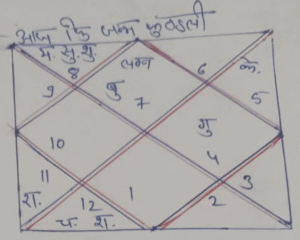 आज कि जन्म कुण्डली
मं. सु. शु.
लग्न
8
6
के.
9
बु
5
7
गु
10
4
11
3
श.
12
1
2
च. श.